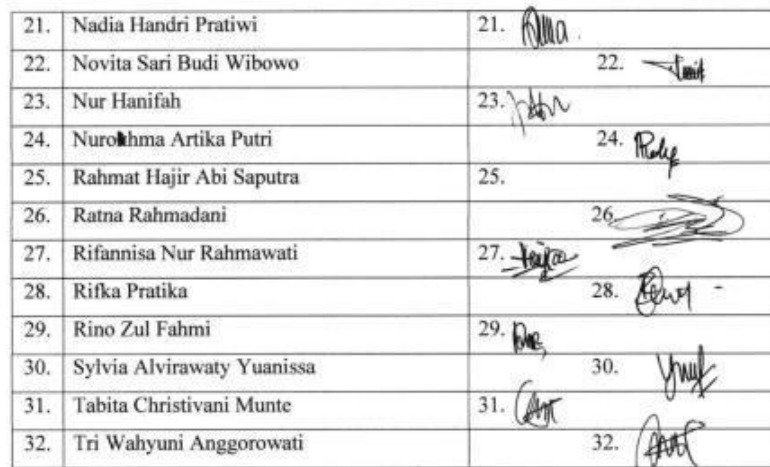 21. Nadia Handri Pratiwi 21.
22. Novita Sari Budi Wibowo 22.
23. Nur Hanifah 23.
24. Artika Putri 24.
25. Rahmat Hajir Abi Saputra 25.
26. Ratna Rahmadani 26.
27. Rifannisa Nur Rahmawati 27.
28. Rifka Pratika 28.
29. Rino Zul Fahmi 29.
30. Sylvia Alvirawaty Yuanissa 30.
31. Tabita Christivani Munte 31.
32. Tri Wahyuni Anggorowati 32.